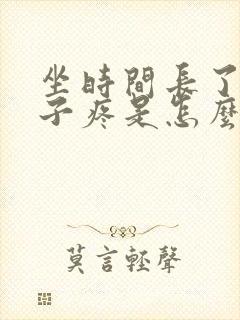 坐時間長了
子疼是怎麼
莫言輕聲